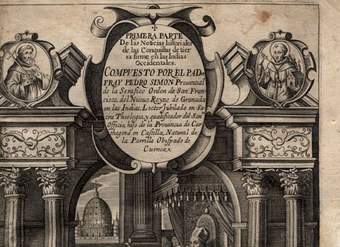 PRIMERA PARTE
De las Noticias historiales
de las Conquistas de tier
ra firme en las Indias
Occidentales.
COMPVESTO POR EL PAD.
FRAY PEDRO SIMON Provincial
de la Serafica Orden de San Fran
cisco, del Nuevo Reyno de Granada
en las Indias. Lector Jubilado en Sa
cra Theologia, y qualificador del San
Officio, hijo de la Provincia de Car
thagena en Castilla, Natural de
la Parrilla Obispado de
Cuenca